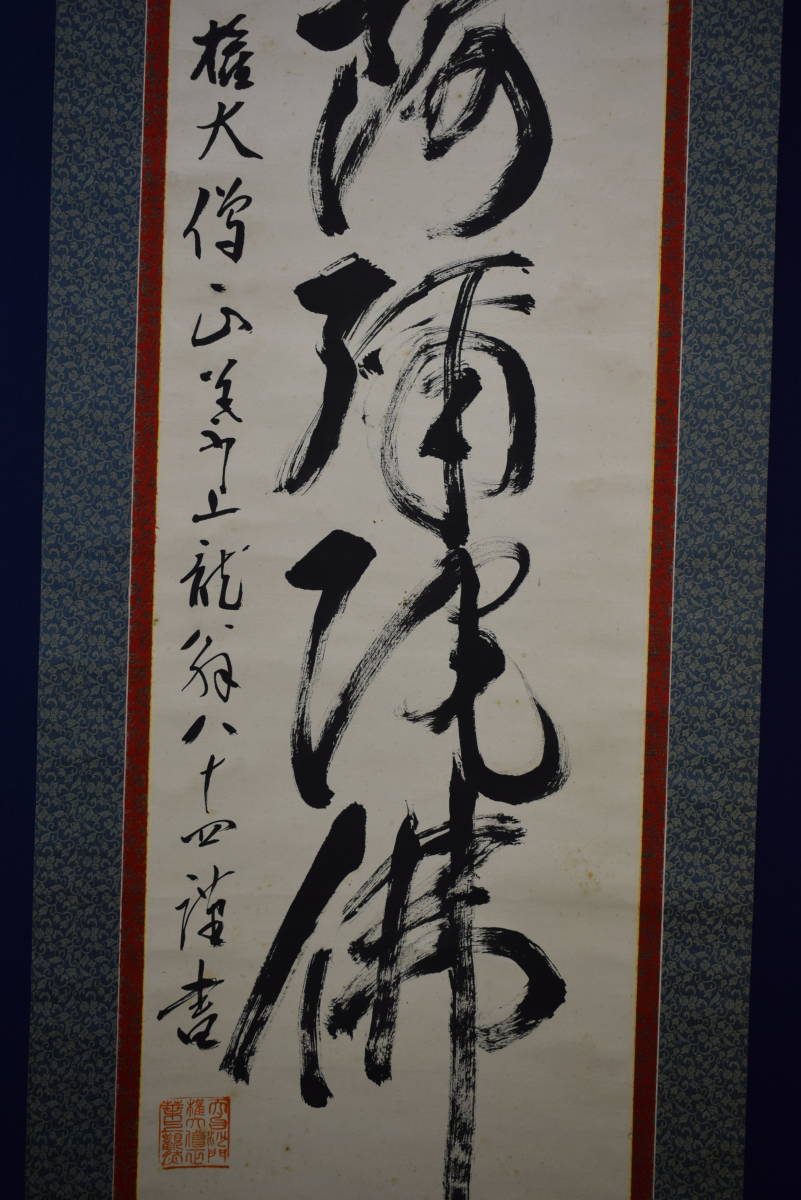 阿彌陀佛
權大僧正葉上龍翁八十四謹書